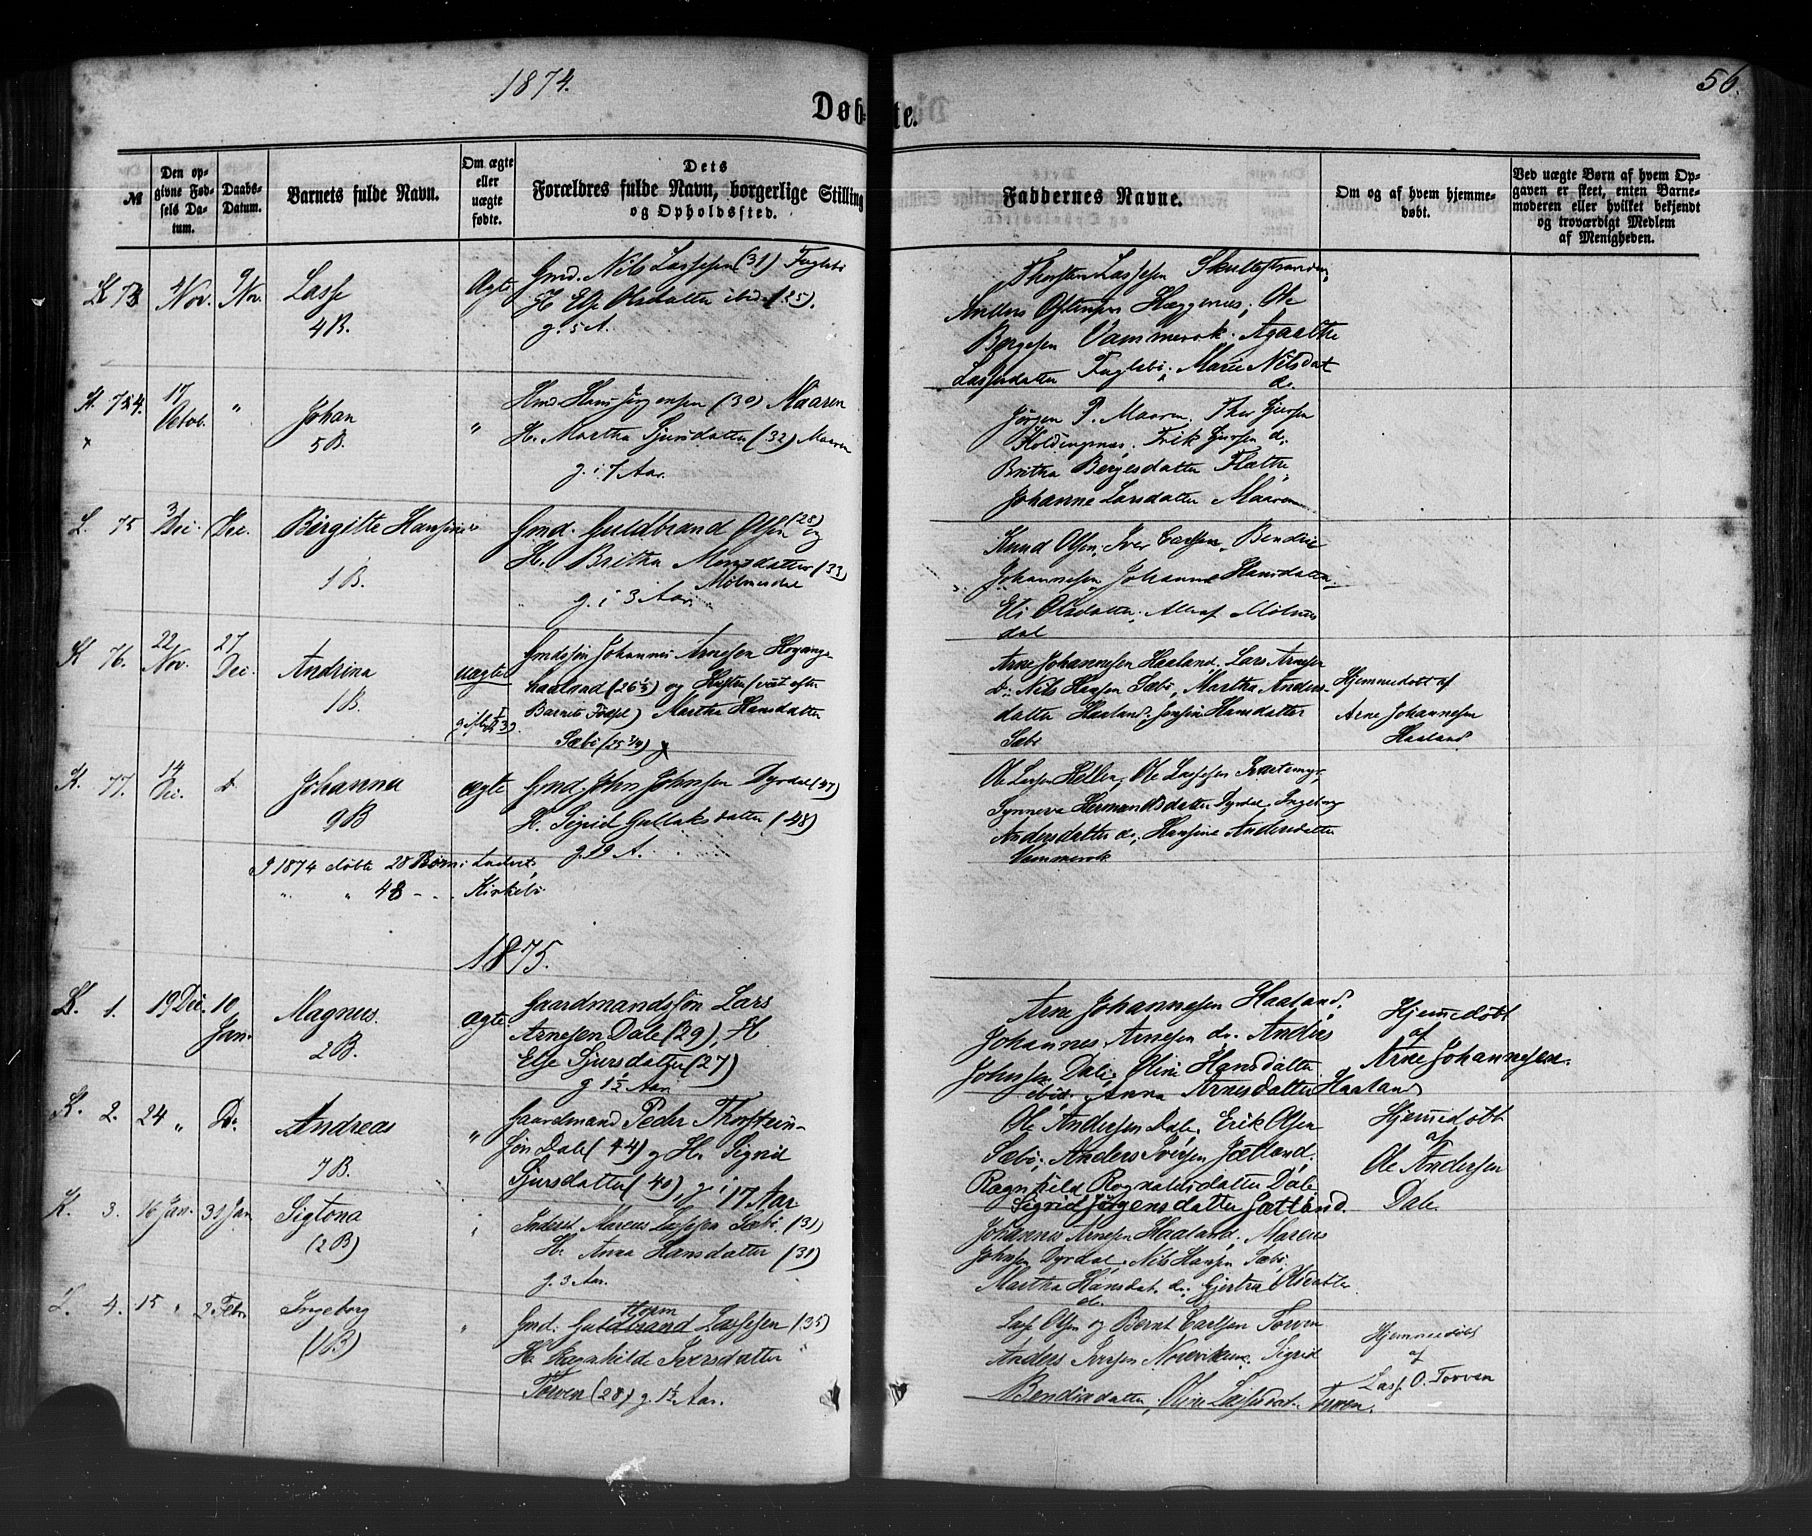 1874.
56.
Døb-te.
№
Den op-
givne Fød-
sels Da-
tum.
Daabs-
Datum.
Barnets fulde Navn.
Om ægte
eller
uægte
fødte.
Dets
Forældres fulde Navn, borgerlige Stilling
og Opholdssted.
Faddernes Navne.
Om og af hvem hjemme-
døbt.
Ved uægte Børn af hvem Op-
gaven er skeet, enten Barne-
moderen eller hvilket bekjendt
og troværdigt Medlem
af Menigheden.
Nov. 9 Nov. Lasse
4 B.
Ægte Gmd. Nils Lassesen (31) Fuglebø
H. Else Olsdatter ibd. (25).
g. 5 A.
Thorsten Lassesen
Anders Hæggenæs, Ole
Børgesen Vammersok. Agathe
Lassesdatter Fuglebø. Marie Nilsdat
do.
K. 74. 17 Octob. " Johan
5 B.
" Hans Jørgensen (30) Maaren
H. Martha Sjursdatter (32) Maaren
g. i 7 Aar.
Jørgen P. Maaren. Thor
Erik do.
Britha Børgesdatter
Johanne Larsdatter Maaren
L. 75 Dec. Birgitte
1 B.
Gmd. Guldbrand Olsen (28) og
H. Britha Monsdatter (33)
Mølmesdal
g. i 3 Aar.
Knud Olsen, Iver Bendix
Johannesen Johanne Hansdatter
Eli Olsdatter. Alle af Mølmes
dal
K 76. 22 Nov. 27 Dec. Andrina
1 B.
uægte Gmdssøn Johannes Arnesen
haaland (26½) og Hustru (viet efter
Barnets Fødsel) Martha Hansdatter
Sæbø (25 ¾)
Arne Johannesen Haaland, Lars Arnesen
do. Nils Hansen Sæbø, Martha Anders-
datter Haaland, Hansdatter
Sæbø
Hjemmedøbt af
Arne Johannesen
Haaland
K. 77. 14 Dec. d. Johanna
9 B
ægte Gmd. John Johnsen Dyrdal
H. Sigrid Gullaksdatter (48)
g. 19 A.
Ole Larsen Heller, Ole Lassesen
Synneva Hermundsdatter Dyrdal, Ingeborg
Andersdatter do. Hansine Andersdatter
Vammersok
I 1874 døbte 28 Børn i
" " 48 - Kirkebø
1875.
K. 1. 19 Dec. 10 Jan. Magnus.
2 B.
ægte Gaardmandssøn Lars
Arnesen Dale (29), H.
Else Sjursdatter (27)
g 1½ Aar
Arne Johannesen Haaland,
Johannes Arnesen do. Andrias
Johnsen Dale, Oline Hansdatter
ibid. Anna Arnesdatter Haaland
Hjemmedøbt
af
Arne Johannesen.
K. 2. 24 " Do. Andreas
7 B.
" Gaardmand Peder Thorstein-
søn Dale (44) og H. Sigrid
Sjursdatter (40), g i 17 Aar
Ole Andersen Dale, Erik Olsen
Sæbø. Anders Iversen Jætland,
Ragnhild Rognaldsdatter Dale
Sigrid Jørgensdatter Jætland.
Hjemmedøbt
af
Ole Andersen
Dale
K. 3. 16 Jan. 31 Jan Sigtona
(2 B)
Inderst Marcus Lassesen Sæbø (31)
H. Anna Hansdatter (31)
g. 3 Aar.
Johannes Arnesen Haaland, Marcus
Johnsen Dyrdal. Nils Hansen Sæbø.
Martha Hansdat. do. Gjertru Olsdatter
do.
L. 4. 15 " 2 Febr. Ingeborg
(1 B)
" Gmd. Guldbrand Lassesen (35)
H. Ragnhilde Iversdatter
Torven (28) g. 1½ Aar.
Lasse Olsen og Bernt Carlsen Torven
Anders Iversen Nordvikene. Sigrid
Bendixdatter, Oline Lassesdat. Torven.
Hjemmedøbt
af
Lasse O. Torven